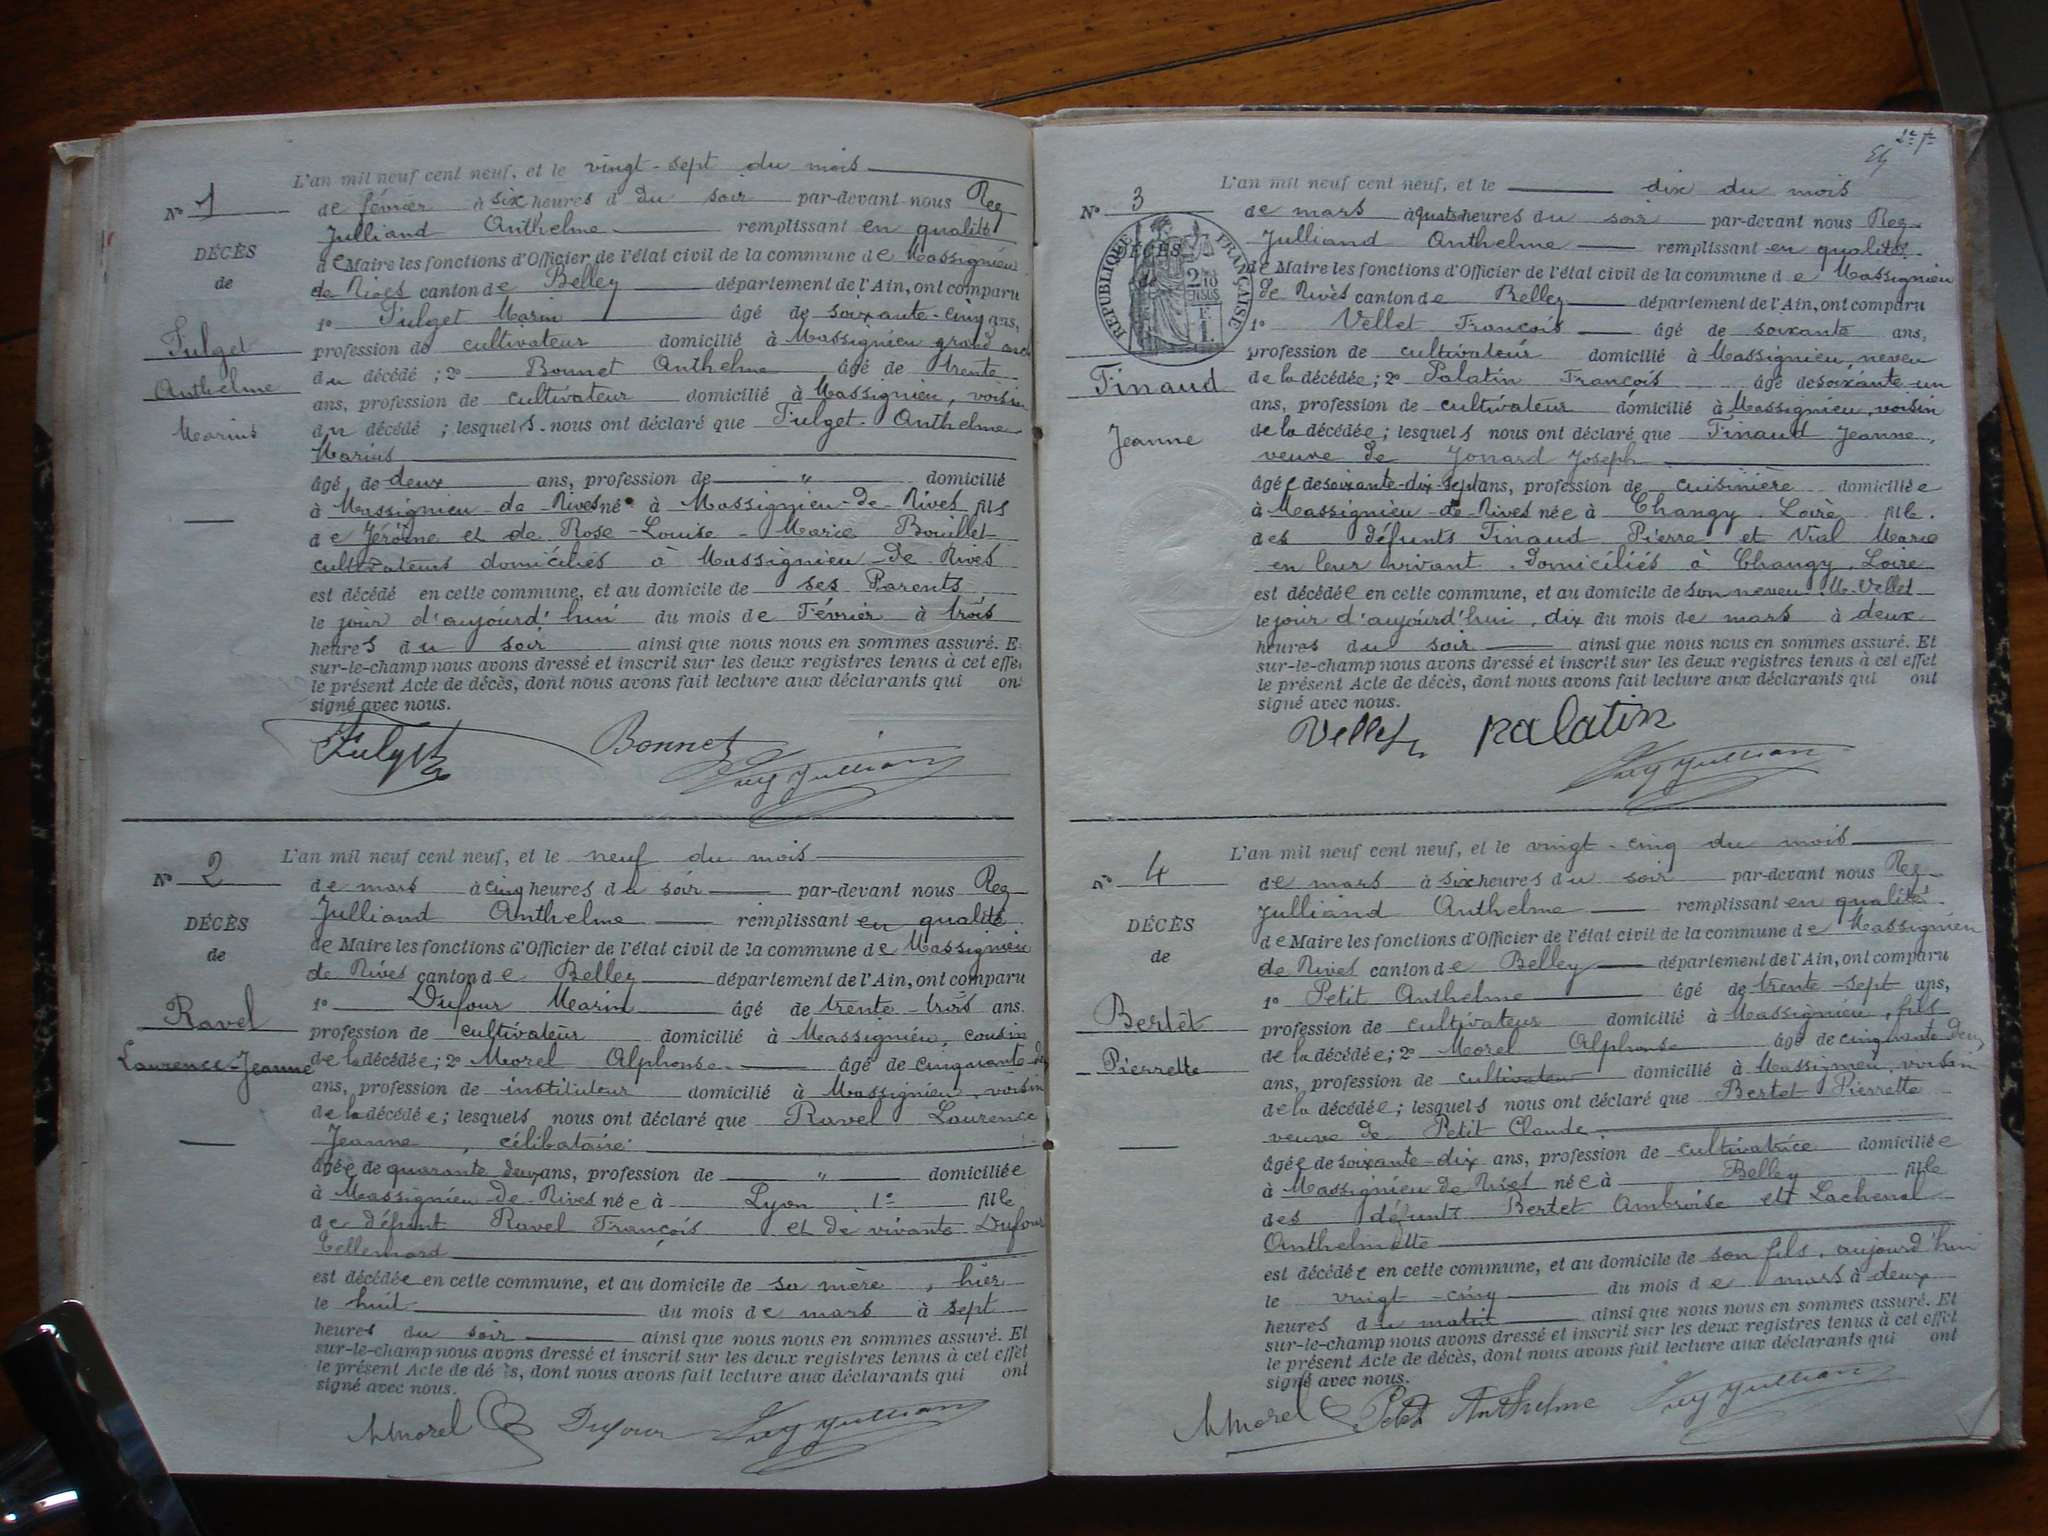 L'an mil neuf cent neuf, et le vingt-sept du mois
N° 1
de février à six heures d du soir par-devant nous Rey
Julliand Anthelme remplissant en qualité
DÉCÈS
de Maire les fonctions d'Officier de l'état civil de la commune de Massignieu
de
de Rives canton de Belley département de l'Ain, ont comparu
1° Fulget Marin âgé de soixante-cinq ans,
Fulget
profession de cultivateur domicilié à Massignieu grand oncle
du décédé ; 2° Bonnet Anthelme âgé de trente
Anthelme
ans, profession de cultivateur domicilié à Massignieu, voisin
Marius
du décédé ; lesquels nous ont déclaré que Fulget Anthelme
Marius
âgé de deux ans, profession de " domicilié
à Massignieu-de-Rives né à Massignieu-de-Rives fils
de Jérôme et de Rose-Louise-Marie Bouillet
cultivateurs domiciliés à Massignieu-de-Rives
est décédé en cette commune, et au domicile de ses Parents
le jour d'aujourd'hui du mois de Février à trois
heures du soir ainsi que nous nous en sommes assuré. E
sur-le-champ nous avons dressé et inscrit sur les deux registres tenus à cet effe
le présent Acte de décès, dont nous avons fait lecture aux déclarants qui on
signé avec nous.
Fulget Bonnet Rey Julliand
L'an mil neuf cent neuf, et le neuf du mois
N° 2
de mars à cinq heures du soir par-devant nous Rey
Julliand Anthelme remplissant en qualité
DÉCÈS
de Maire les fonctions d'Officier de l'état civil de la commune de Massignieu
de
de Rives canton de Belley département de l'Ain, ont comparu
1° Dufour Marin âgé de trente-trois ans.
Ravel
profession de cultivateur domicilié à Massignieu, cousin
Laurence-Jeanne
de la décédée ; 2° Morel Alphonse âgé de cinquante-deux
ans, profession de instituteur domicilié à Massignieu, voisin
de la décédée ; lesquels nous ont déclaré que Ravel Laurence
Jeanne, célibataire
âgée de quarante deux ans, profession de " domiciliée
à Massignieu-de-Rives née à Lyon fille
de défunt Ravel François et de vivante Dufour
est décédée en cette commune, et au domicile de sa mère, hier
le huit du mois de mars à sept
heures du soir ainsi que nous nous en sommes assuré. Et
sur-le-champ nous avons dressé et inscrit sur les deux registres tenus à cet effet
le présent Acte de dé s, dont nous avons fait lecture aux déclarants qui ont
signé avec nous.
AMorel Dufour Rey Julliand
L'an mil neuf cent neuf, et le dix du mois
N° 3
de mars à quatre heures du soir par-devant nous Rey
Julliand Anthelme remplissant en qualité
RÉPUBLIQUE FRANÇAISE
DÉCÈS
de
de Maire les fonctions d'Officier de l'état civil de la commune de Massignieu
de Rives canton de Belley département de l'Ain, ont comparu
1° Vellet François âgé de soixante ans,
profession de cultivateur domicilié à Massignieu, neveu
Finaud
de la décédée ; 2° Palatin François âgé de soixante-un
ans, profession de cultivateur domicilié à Massignieu, voisin
Jeanne
de la décédée ; lesquels nous ont déclaré que Finaud Jeanne,
veuve de Jonard Joseph
âgée de soixante-dix-sept ans, profession de cuisinière domiciliée
à Massignieu-de-Rives née à Changy Loire fille
des défunts Finaud Pierre et Vial Marie
en leur vivant domiciliés à Changy Loire
est décédée en cette commune, et au domicile de son neveu M. Vellet
le jour d'aujourd'hui, dix du mois de mars à deux
heures du soir ainsi que nous nous en sommes assuré. Et
sur-le-champ nous avons dressé et inscrit sur les deux registres tenus à cet effet
le présent Acte de décès, dont nous avons fait lecture aux déclarants qui ont
signé avec nous.
Vellet Palatin Rey Julliand
L'an mil neuf cent neuf, et le vingt-cinq du mois
N° 4
de mars à six heures du soir par-devant nous Rey
Julliand Anthelme remplissant en qualité
DÉCÈS
de Maire les fonctions d'Officier de l'état civil de la commune de Massignieu
de
de Rives canton de Belley département de l'Ain, ont comparu
1° Petit Anthelme âgé de trente-sept ans,
Bertet
profession de cultivateur domicilié à Massignieu, fils
de la décédée ; 2° Morel Alphonse âgé de cinquante deux
Pierrette
ans, profession de cultivateur domicilié à Massignieu, voisin
de la décédée ; lesquels nous ont déclaré que Bertet Pierrette
veuve de Petit Claude
âgée de soixante-dix ans, profession de cultivatrice domiciliée
à Massignieu de Rives née à Belley fille
des défunts Bertet Ambroise et Lachenal
Anthelmette
est décédée en cette commune, et au domicile de son fils, aujourd'hui
le vingt-cinq du mois de mars à deux
heures du matin ainsi que nous nous en sommes assuré. Et
sur-le-champ nous avons dressé et inscrit sur les deux registres tenus à cet effet
le présent Acte de décès, dont nous avons fait lecture aux déclarants qui ont
signé avec nous.
AMorel Petit Anthelme Rey Julliand